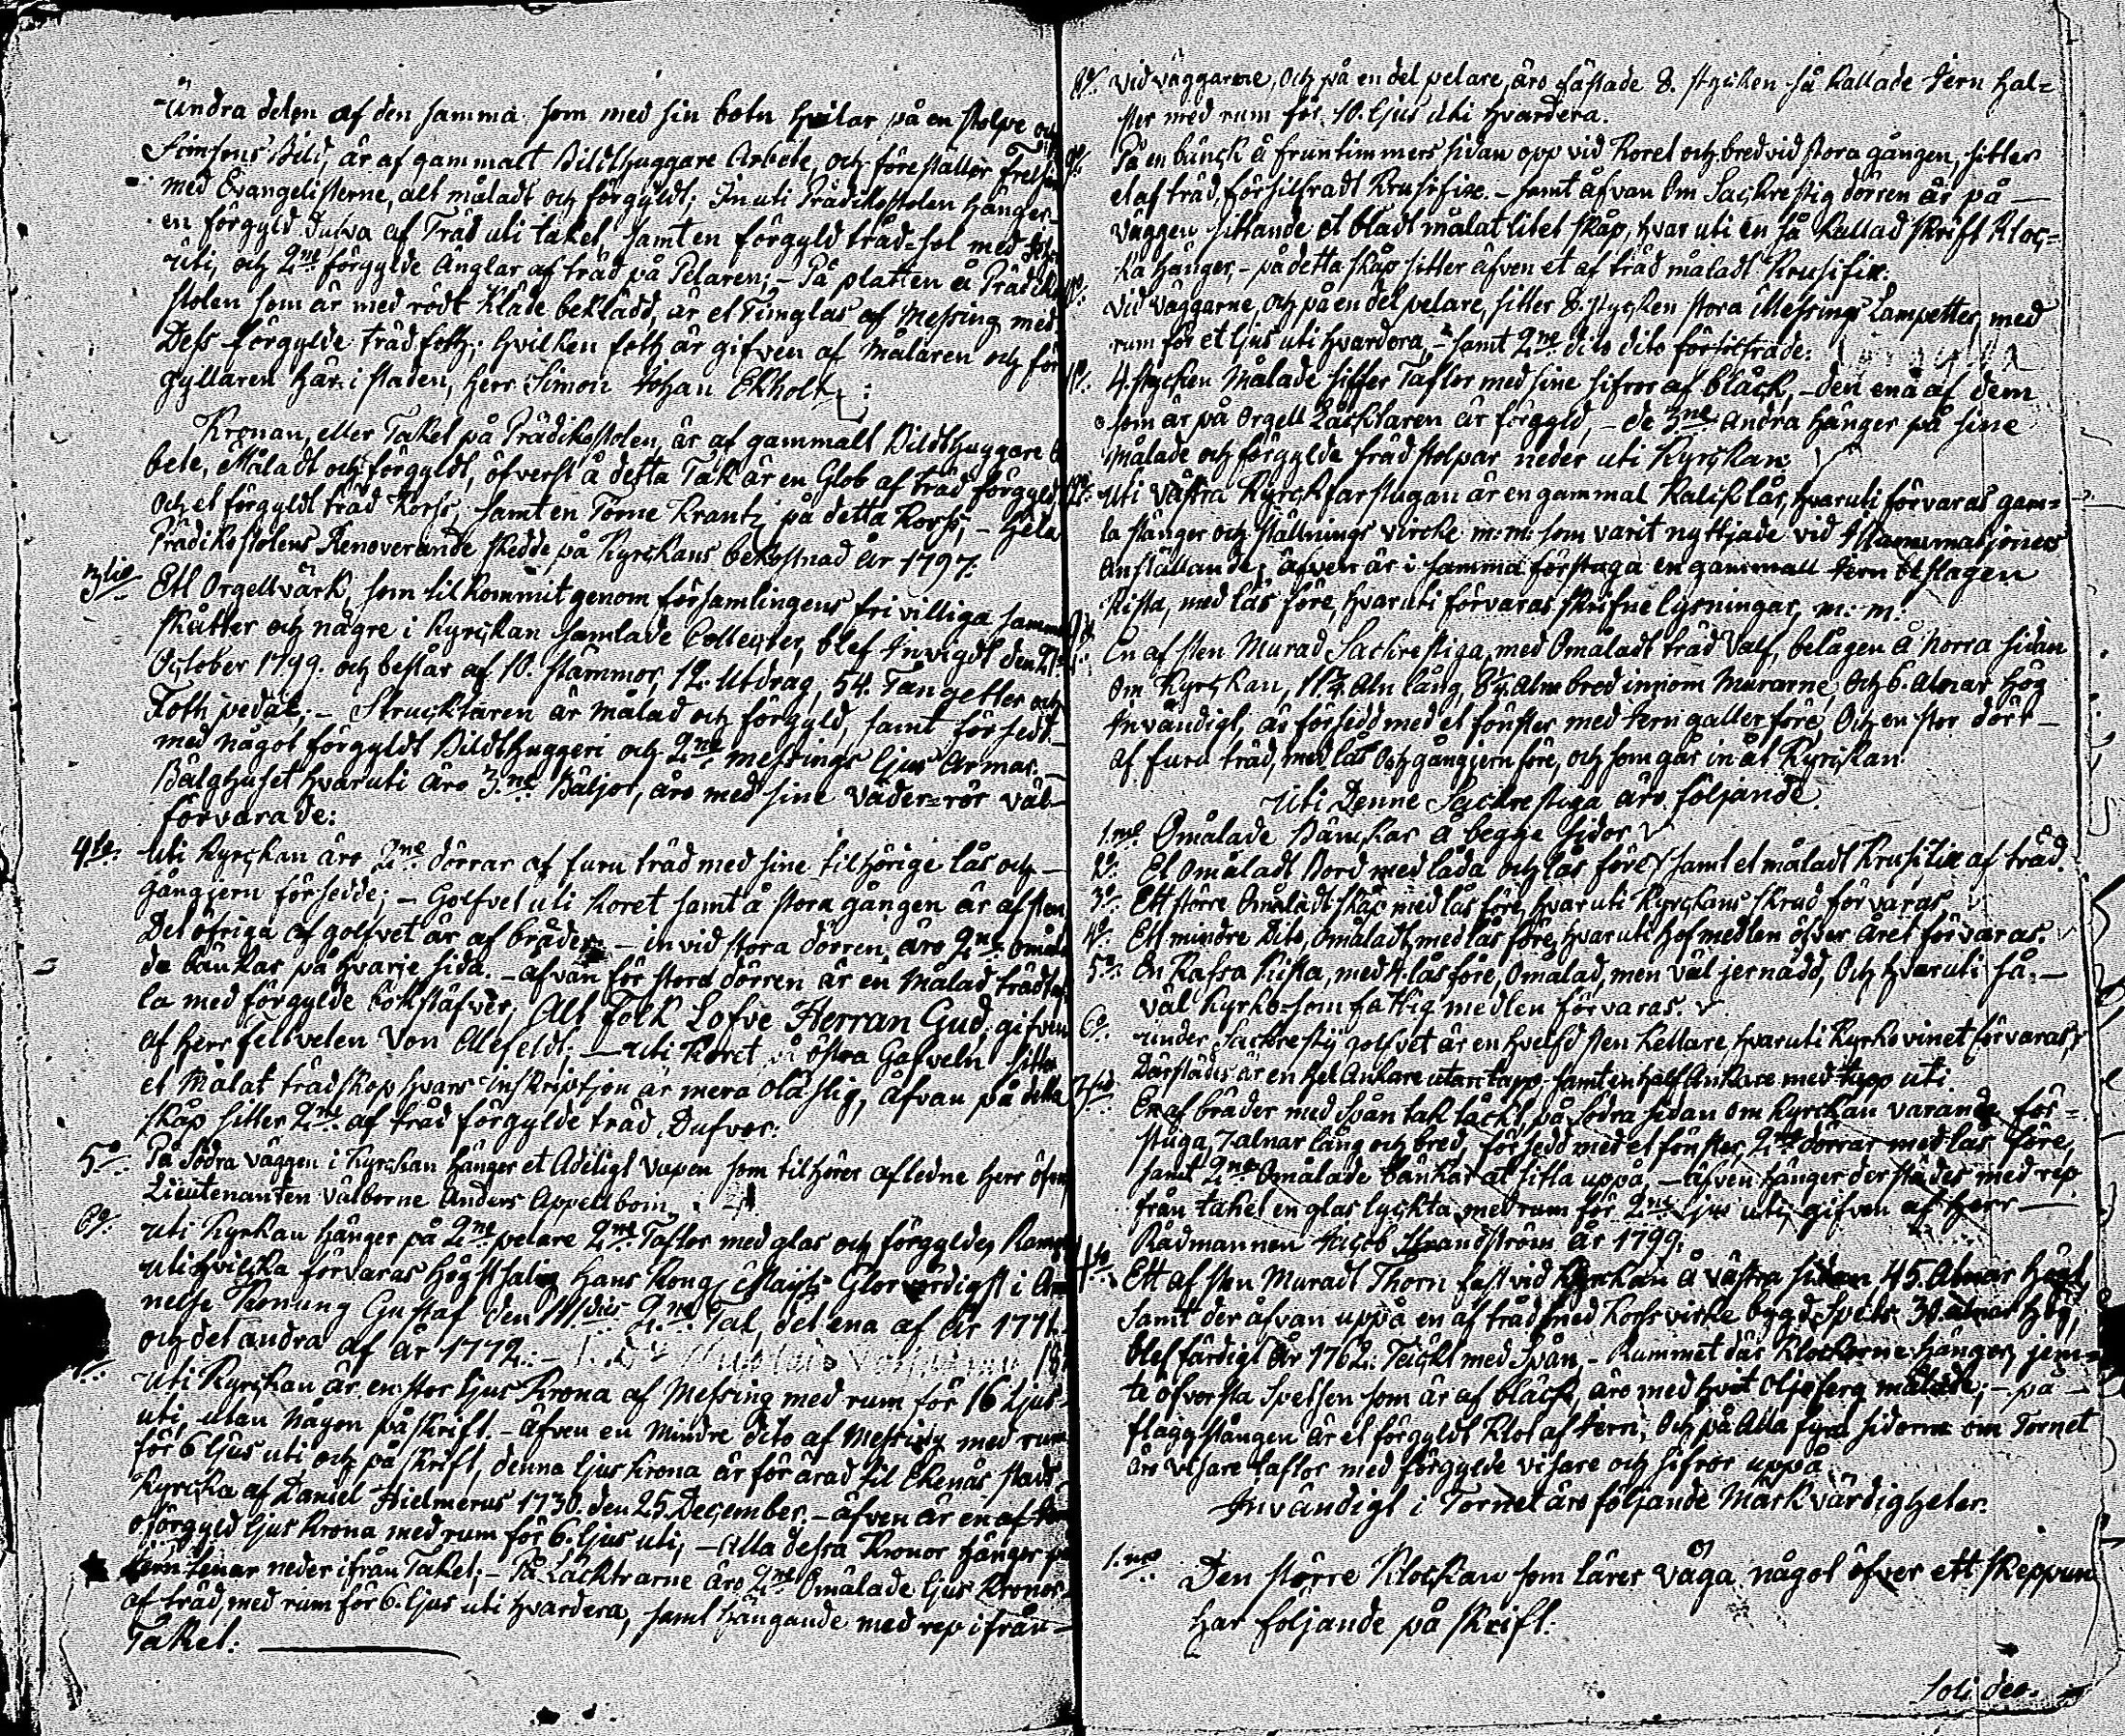 undra delen af den samma som med sin botn hvilar på en stolpe och
Simsons Bild, är af gammalt Bildthuggare Arbete och föreställer frelsaren
med Evangelisterne, alt måladt och förgyldt; Inuti Prädikostolen hänger
en förgyld dufva af Träd uti taket, samt en förgyld träd-sol med
uti, och 2ne förgylde Änglar af träd på Pelaren; - På platten å Prädiko
stolen som är med rödt Kläde beklädd, är et Timglas af Messing med
Dess förgylde träd foth; hvilken foth är gifven af Målaren och för
gyllaren här i staden, Herr Simon Johan Ekholm:
Kronan, eller Taket på Prädikostolen, är af gammalt Bildthuggare
bete, Måladt och förgyldt, öfverst å detta Tak är en Glob af träd förgyld
och et förgyldt träd Korss, samt en Törne Krantz på detta Korss; - Hela
Prädikostolens Renoverande skedde på Kyrckans bekostnad år 1797.
3tio Ett Orgellvärk, som tilkommit genom församlingens frivilliga samman
skåtter och några i Kyrckan samlade Collecter, blef Invigdt den
October 1799. och består af 10. stämmor, 12. Utdrag, 54. Tangetter och
Foth pedal; - Strucktüren är målad och förgyld, samt försedt
med något förgyldt Bildthuggeri och 2ne messings ljus Armar.
Bälghuset hvaruti äro 3ne Bäljor, äro med sine väder-rör väl
förvarade:
4to Uti Kyrckan äro 2ne dörrar af furu träd med sine tilhörige lås och
gångjern försedde; - Golfvet uti Koret samt å stora gången är af sten
Det öfriga af golfvet är af bräder; - invid stora dörren äro 2ne omåla
de bänkar på hvarje sida. - äfvan för stora dörren är en Målad trädtaf
la med förgylde bokstäfver; Allt Folk Lofve Herran Gud, gifven
af Herr Fellvelen Von Allefeldt; - Uti Koret å östra Gafveln sitter
et Målat träd skåp hvars inskripsjon är mera oläslig, äfvan på detta
skåp sitter 2ne af träd förgylde träd Dufvor.
5o På södra väggen i Kyrckan hänger et Adeligt vapen som tilhörer afledne Herr öfverste
Lieutenanten välborne Anders Appellbom.
6o Uti Kyrkan hänger på 2ne pelare 2ne Taflor med glas och förgyldes Ramar
uti hvilcka förvaras Högst salig Hans Kong Maijts Glorvördigst i Åmin
nelse Konung Gustaf den IIIdies 2ne Tal, det ena af år 1771.
och det andra af år 1772.: -
Uti Kyrckan är en stor ljus Krona af Messing med rum för 16 Ljus
uti, utan någon påskrift. - äfven en Mindre dito af Messing med rum
för 6 ljus uti och på skrift, denna ljus krona är förärad til Ekenäs stads
Kyrcka af Daniel Hielmerus 1730. den 25. December. - äfven är en af
oförgyld ljus krona med rum för 6. ljus uti; - Alla dessa Kronor hänger på
Jern tenar neder ifrån Taket; - På Läcktrarne äro 2ne Omålade ljus Kronor
af träd, med rum för 6. ljus uti hvardera, samt hängande med rep ifrån
Taket:
8o Vid väggarne, och på en del pelare, äro fästade 8. stycken så kallade Jern Hal=
ster med rum för 10. ljus uti hvardera.
9o På en bänck å fruntimmers sidan opp vid Koret och bredvid stora gången, sitter
et af träd, försilfradt Krusifix. - samt äfvan om Sackrestig dörren är på
väggen sittande et blådt målat litet skåp, hvar uti en så kallad skrift Kloc=
ka hänger, - på detta skåp sitter äfven et af träd måladt Krusifix:
10o Vid väggarne, och på en del pelare, sitter 8. stycken stora Messings Lampetter, med
rum för et ljus uti hvardera, - samt 2ne dito dito försilfrade:
11o 4. stycken Målade siffer Taflor med sine sifror af bläck, - den ena af dem
som är på Orgell Läcktaren är förgyld, - de 3ne andra hänger på sine
Målade och förgylde träd stolpar neder uti Kyrckan:
12o Uti västra Kyrck farstugan är en gammal Kalicklår, hvaruti förvaras gam=
la stänger och ställnings vircke m: m: som varit nyttjade vid Illuminasjoners
anställande; äfven är i samma förstuga en gammall Jern beslagen
kista, med lås före, hvaruti förvaras skrifne lysningar, m: m:
En af sten Murad Sackrestiga, med Omåladt träd Valf, belägen å norra sidan
om Kyrckan, 11 3/4. Aln lång, 8 1/4. Aln bred innom Murarne, och 6. Alnar hög
Invändigt, är försedd med et fönster med Jern galler före, Och en stor dörr
af furu träd, med lås och gångjern före, och som går in åt Kyrckan:
Uti Denne Sackrestiga äro följande.
1.mo Omålade Bänckar å begge sidor
2o Et Omåladt Bord med låda och lås före, samt et måladt Krusifix af träd.
3o Ett större Omåladt skåp med lås före, hvaruti Kyrckans skrud förvaras
4o Ett mindre dito, omåladt, med lås före, hvaruti hofmedlen öfver Året förvaras.
5o En Kassa Kista, med 4. lås före, Omålad, men väl jernadd, Och hvaruti så
väl Kyrko- som fattig medlen förvaras.
6o Under Sackrestij golfvet är en hvelfd sten Kellare, hvaruti Kyrkovinet förvaras,
Därstädes är en hel Ankare utan tapp samt en half Ankare med tapp uti.
En af bräder med Spån tak täckt, på Södra sidan om Kyrckan varande för=
stuga, 7 alnar lång och bred, försedd med et fönster, 2ne dörrar med lås före,
samt 2ne Omålade bänkar at sitta uppå, - äfven hänger derstädes med rep
från taket en glas lyckta med rum för 2ne ljus uti, gifven af Herr
Rådmannen Jacob Strandström år 1799.
Ett af sten Muradt Thorn fast vid Kyrckan å västra sidan 45. Alnar högt,
samt der äfvan uppå en af träd med Korssvirke bygd Spets 30. alnar hög,
blef färdigt År 1762. Täckt med Spån, - Rummet där Klockorna hänger, jem=
te öfversta Spetsen som är af bläck, äro med hvit oljeferg målade; - på
flaggstången är et förgyldt Klot af Jern; Och på Alla fyra sidorne om Tornet
äro visare taflor med förgylde visare och sifror uppå.
Invändigt i Tornet äro följande Märkvärdigheter.
1.mo Den större Klockan som lärer väga något öfver ett skeppund
har följande på skrift.
Soli deo.